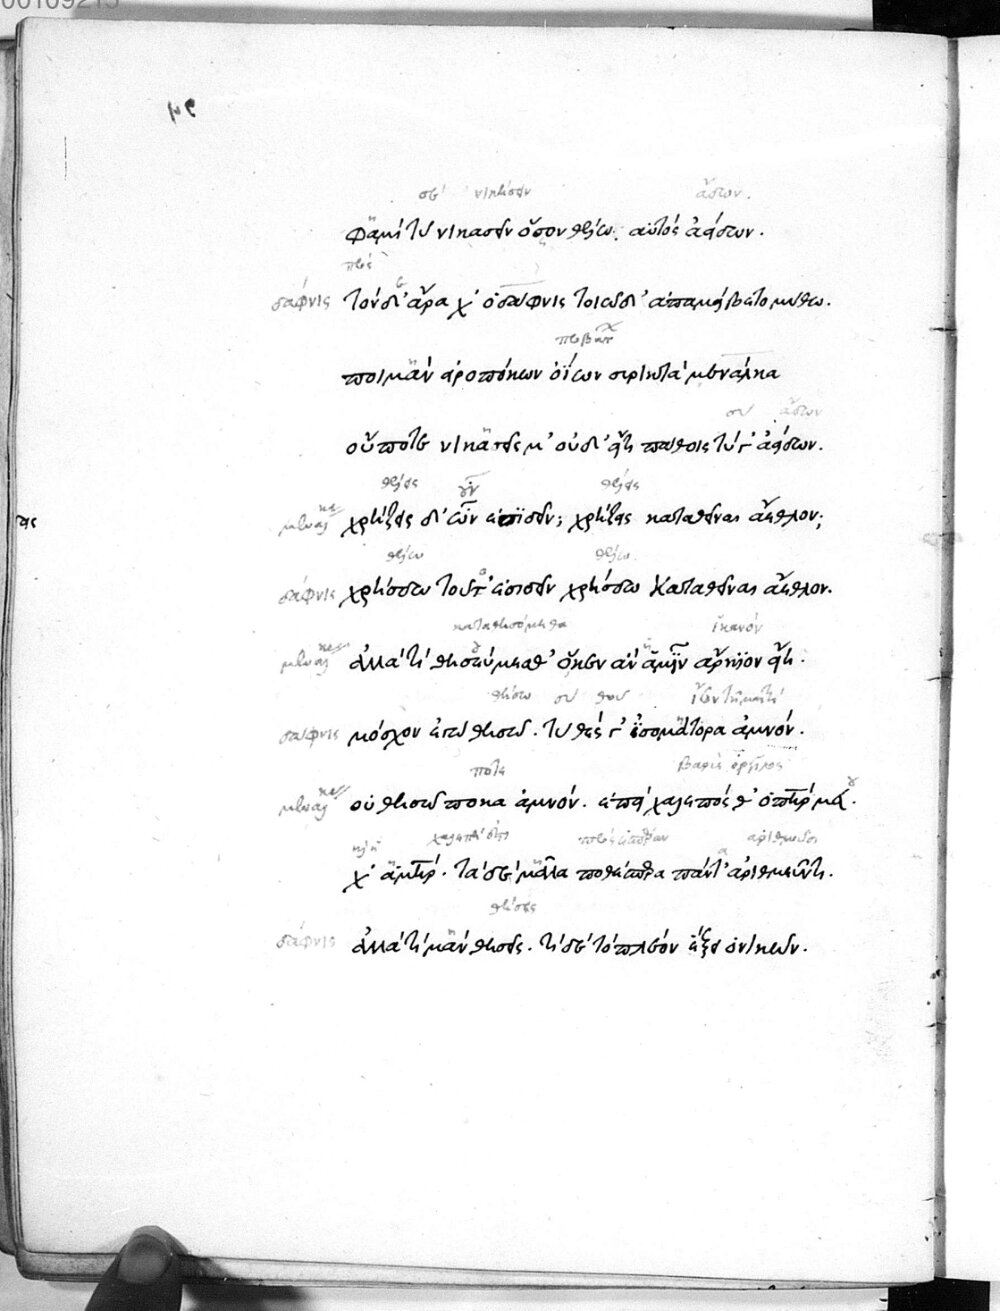 σὲ νικήσειν ᾄδων.
φᾱμί τυ νικασεῖν ὅσον θέλω αὐτὸς ἀείδων.
πρὸς
δάφνις τὸν δ' ἄρα χ' ὁ δάφνις τοιῶδ' ἀπαμείβετο μύθω.
ποιμὰν εἰροπόκων ὀΐων συρικτὰ μενάλκα
σὺ ᾄδων
οὔποτε νικασεῖς μ' οὐδ' εἴ τι πάθοις τύ γ' ἀείδων.
θέλεις οὖν θέλεις
μενάλκας χρῄζεις δ' ὦν ἐσιδεῖν; χρῄζεις καταθεῖναι ἄεθλον;
θέλω θέλω
δάφνις χρῄσδω τοῦτ' ἐσιδεῖν χρῄσδω καταθεῖναι ἄεθλον.
καταθησόμεθα ἱκανὸν
μενάλκας ἀλλὰ τί θησεύμεσθ' ὅκεν ἁμῖν ἄρκιον εἴη.
θήσω σὺ θοῦ
δάφνις μόσχον ἐγὼ θησῶ. τὺ θές γ' ἰσομάτορα ἀμνόν.
ποτε βαρὺς ὀργίλος
μενάλκας οὐ θησῶ ποκα ἀμνόν. ἐπεὶ χαλεπός θ' ὁ πατήρ μευ.
χ' ἁ μήτηρ. τὰ δὲ μᾶλα ποθέσπερα πάντ' ἀριθμεῦντι.
θήσεις
δάφνις ἀλλὰ τί μὰν θησεῖς. τί δὲ τὸ πλέον ἕξει ὁ νικῶν.